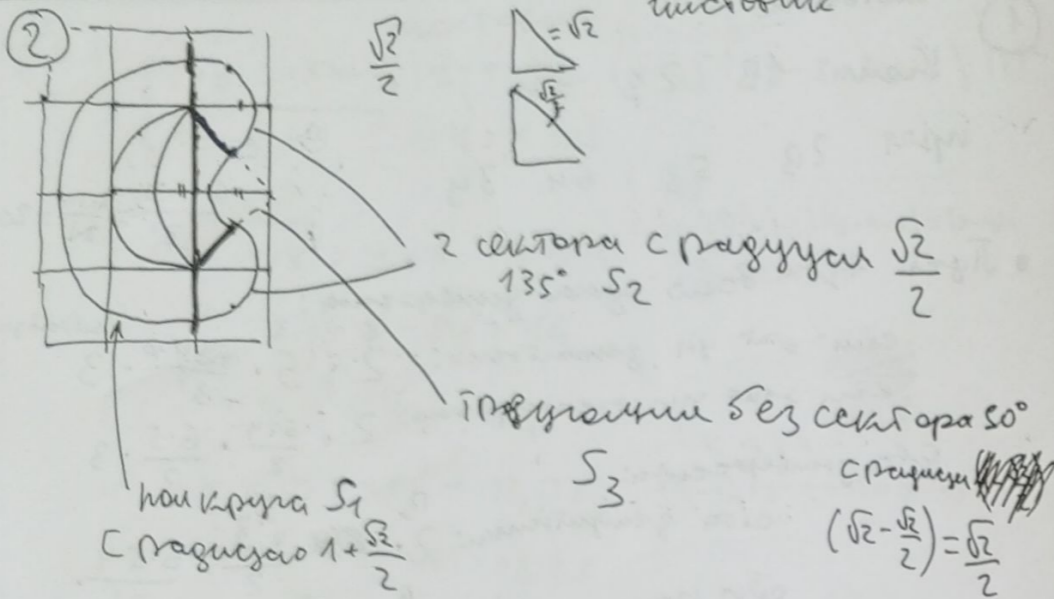 чистовик
②
√2/2
= √2
√2/2
2 сектора с радиусом √2/2
135° S₂
треугольник без сектора 90°
S₃
с радиусом
(√2 - √2/2) = √2/2
пол круга S₁
с радиусом 1 + √2/2